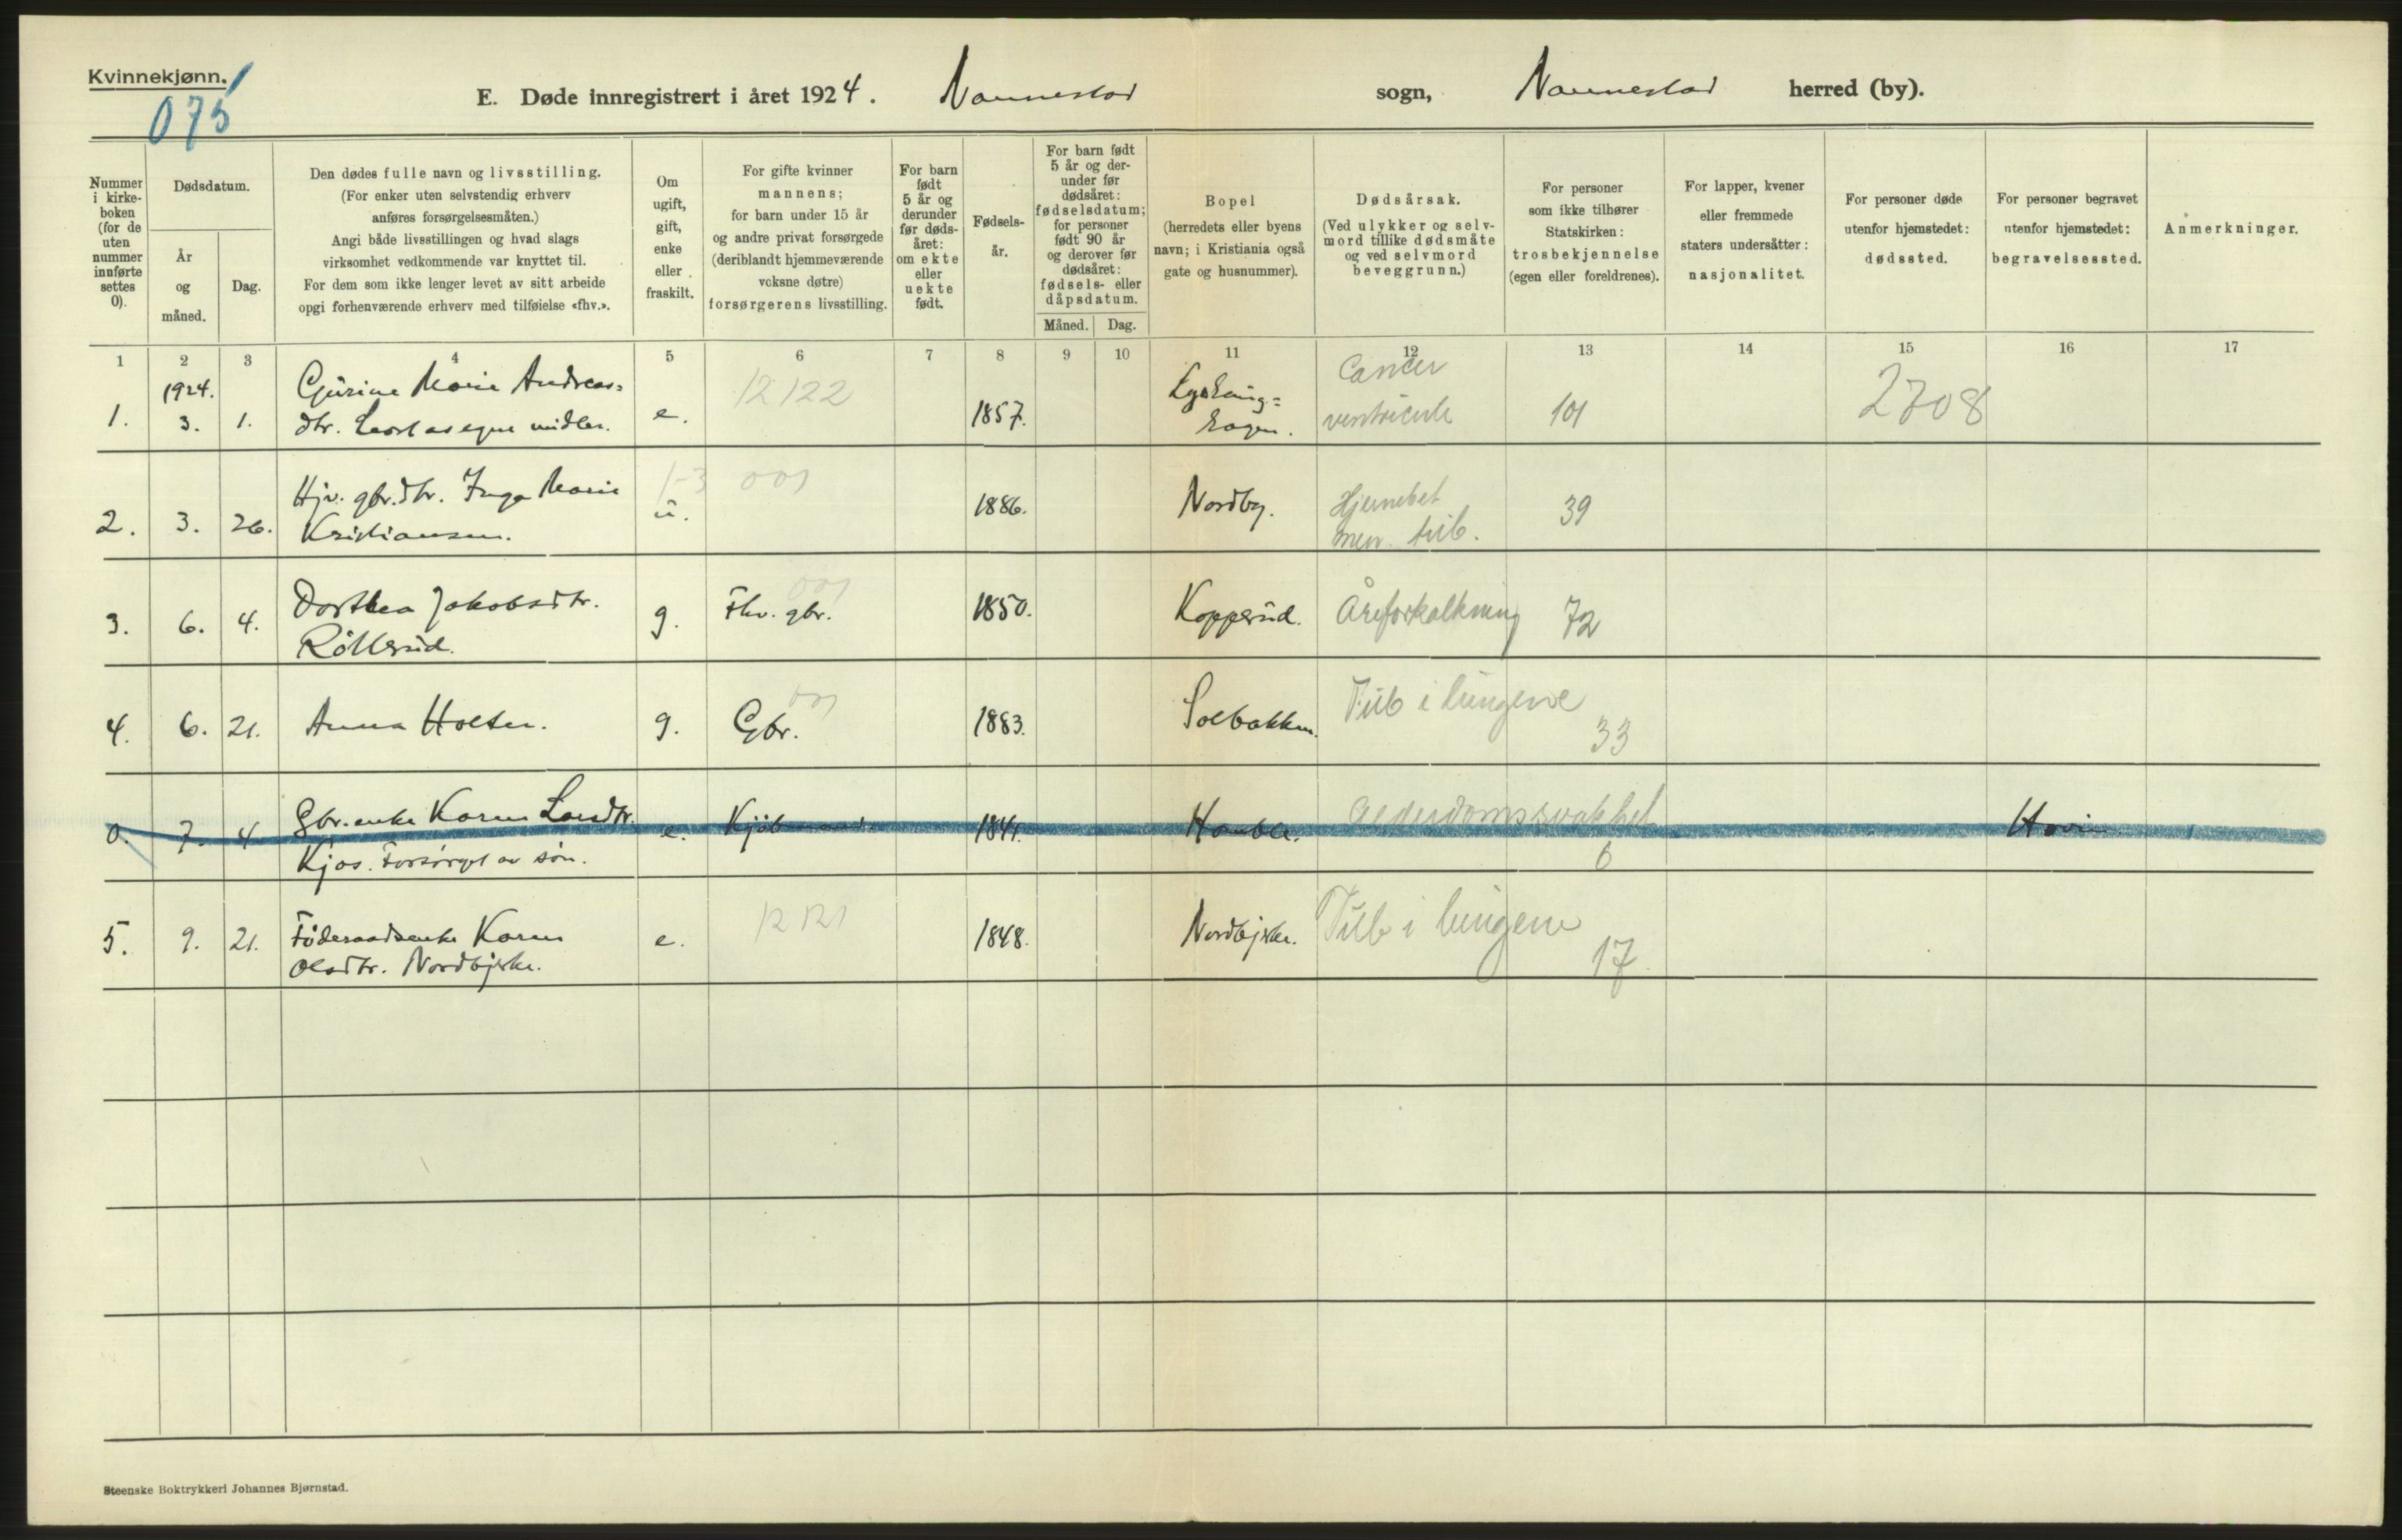 Kvinnekjønn.
075
E. Døde innregistrert i året 1924. Nannestad sogn, Nannestad herred (by).
Nummer i kirke-boken (for de uten nummer innførte settes 0).
Dødsdatum.
År og måned.
Dag.
Den dødes fulle navn og livsstilling.
(For enker uten selvstendig erhverv
anføres forsørgelsesmåten.)
Angi både livsstillingen og hvad slags
virksomhet vedkommende var knyttet til.
For dem som ikke lenger levet av sitt arbeide
opgi forhenværende erhverv med tilføielse «fhv.».
Om ugift, gift, enke eller fraskilt.
For gifte kvinner
mannens;
for barn under 15 år
og andre privat forsørgede
(deriblandt hjemmeværende
voksne døtre)
forsørgerens livsstilling.
For barn født 5 år og derunder før døds-året: om ekte eller uekte født.
Fødsels-år.
For barn født 5 år og der-under før dødsåret: fødselsdatum; for personer født 90 år og derover før dødsåret: fødsels- eller dåpsdatum.
Måned. Dag.
Bopel
(herredets eller byens
navn; i Kristiania også
gate og husnummer).
Dødsårsak.
(Ved ulykker og selv-
mord tillike dødsmåte
og ved selvmord
beveggrunn.)
For personer
som ikke tilhører
Statskirken:
trosbekjennelse
(egen eller foreldrenes).
For lapper, kvener
eller fremmede
staters undersåtter:
nasjonalitet.
For personer døde
utenfor hjemstedet:
dødssted.
For personer begravet
utenfor hjemstedet:
begravelsessted.
Anmerkninger.
1 2 3 4 5 6 7 8 9 10 11 12 13 14 15 16 17
1924.
1. 3. 1. Gurine Marie Andreas=
dtr. Levet av egne midler. e. 12122 1857. Cancer
ventriculi 101 2708
2. 3. 26. Hjv. gbr.dtr. Inga Marie
Kristiansen. u. 1-3 001 1886. Nordby. Hjernebet
men. tub. 39
3. 6. 4. Dorthea Jakobsdtr.
Röllerud. g. Fhv. gbr. 001 1850. Kopperud. Åreforkalkning 72
4. 6. 21. Anna Holter. g. Gbr. 001 1883. Solbakken. Tub i lungene 33
0. 7. 4. Gbr.enke Karen Larsdtr.
Kjos. Forsörget av sön. e. 1841. Alderdomssvakhet 6 Hovin
5. 9. 21. Föderaadsenke Karen
Olsdtr. Nordbjerke. e. 12121 1848. Nordbjerke. Tub i lungene 17
Steenske Boktrykkeri Johannes Bjørnstad.